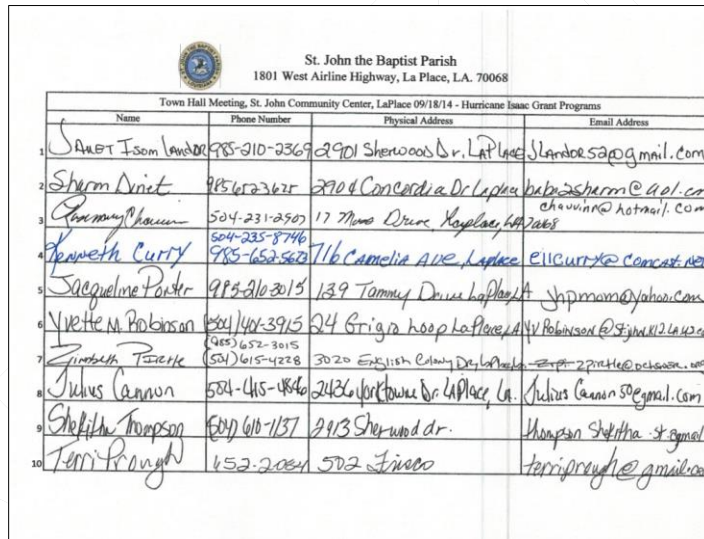 St. John the Baptist Parish
1801 West Airline Highway, La Place, LA. 70068
Town Hall Meeting, St. John Community Center, LaPlace 09/18/14 - Hurricane Isaac Grant Programs
Name Phone Number Physical Address Email Address
1 Janet Isom Landor 985-210-2369 2901 Sherwood Dr. LaPlace JLandor52@gmail.com
2 Sharon 985 652 3625 2904 Concordia Dr Laplace
3 504-231-2507 17 Drive Laplace, LA 70068 chauvinn@hotmail.com
4 Kenneth Curry 504-235-8746 985-652-5673 716 Camelia Ave, Laplace ellcurry@comcast.net
5 Jacqueline Porter 985-210-3015 139 Tammy Drive LaPlace, LA jhpmom@yahoo.com
6 Yvette M. Robinson (504) 401-3915 24 Grigio Loop LaPlace, LA
7 (985) 652-3015 (504) 615-4228 3020 English Colony Dr, LaPlace
8 Julius Cannon 504-415-4846 2436 Yorktowne Dr. LaPlace, LA. Julius Cannon 50@gmail.com
9 Shekitha Thompson (504) 610-1137 2913 Sherwood dr. thompson shekitha
10 Terri Prough 652-2084 502 Frisco terriprough@gmail.co